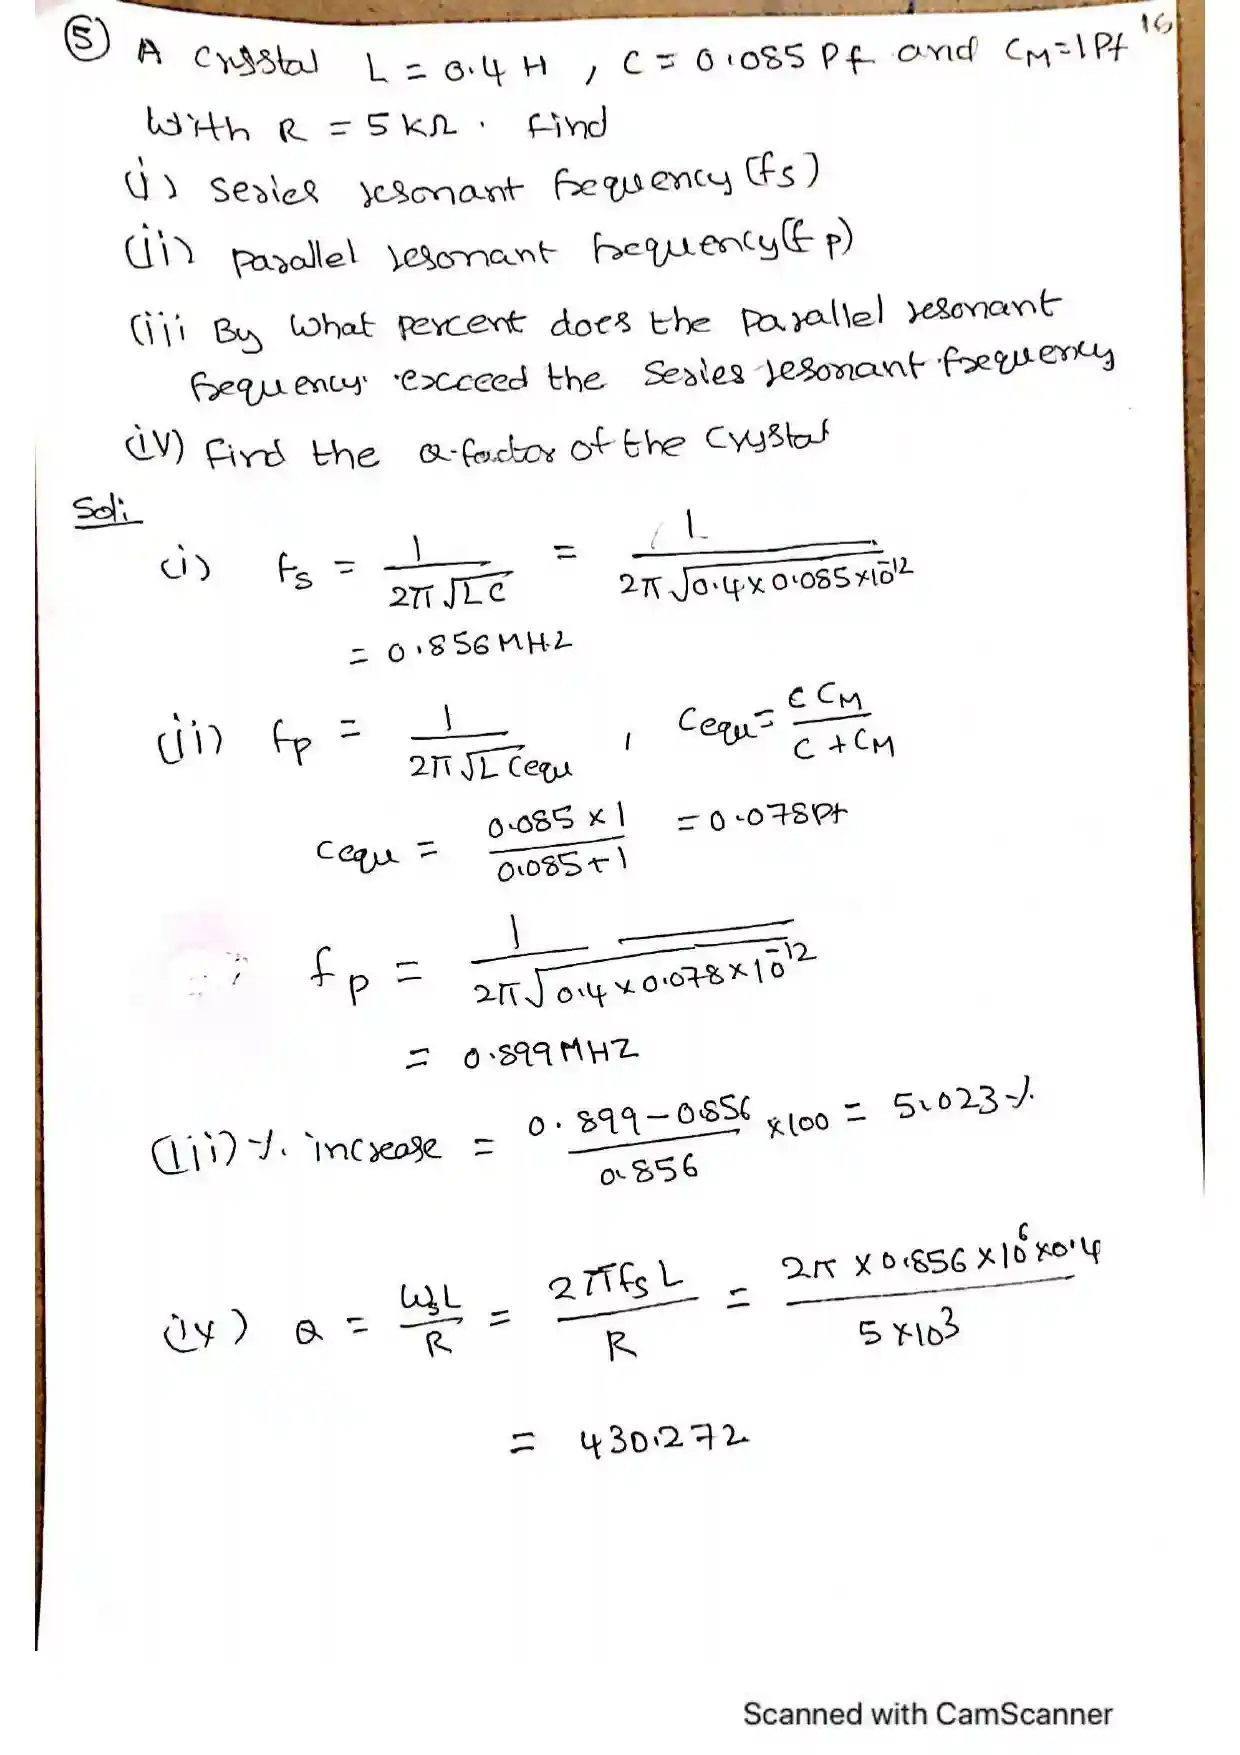 ⑤ A Crystal L = 0.4 H , C = 0.085 Pf and C_M = 1 Pf 15
With R = 5 KΩ . find
(i) Series resonant frequency (fs)
(ii) Parallel resonant frequency (fp)
(iii By What Percent does the Parallel resonant
frequency exceed the Series resonant frequency
(iv) find the Q-factor of the Crystal
Sol:
(i) fs = 1 / 2π √LC = 1 / 2π √0.4 × 0.085 × 10^-12
= 0.856 MHZ
(ii) fp = 1 / 2π √L Cequ , Cequ = C C_M / C + C_M
Cequ = 0.085 × 1 / 0.085 + 1 = 0.078 Pf
fp = 1 / 2π √0.4 × 0.078 × 10^-12
= 0.899 MHZ
(iii) % increase = 0.899 - 0.856 / 0.856 × 100 = 5.023 %
(iv) Q = ωsL / R = 2πfsL / R = 2π × 0.856 × 10^6 × 0.4 / 5 × 10^3
= 430.272
Scanned with CamScanner